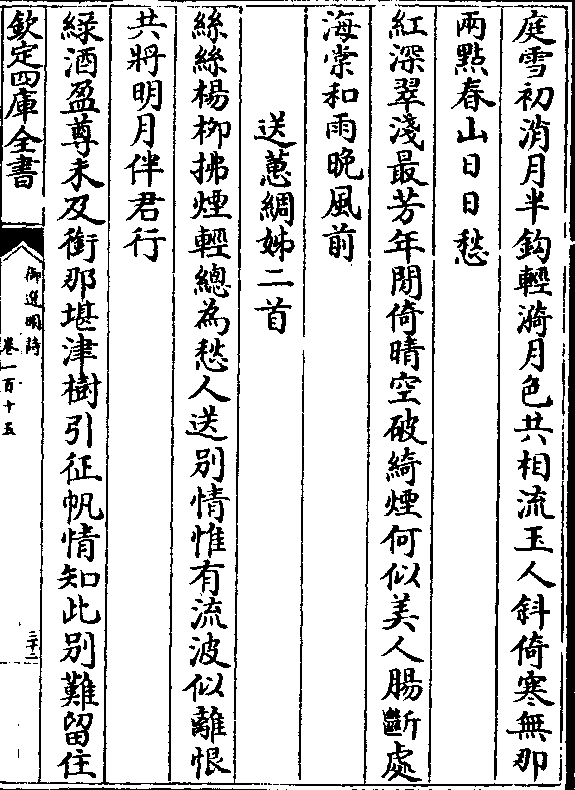 庭雪初消月半鈎輕漪月色共相流玉人斜倚寒無那
兩點春山日日愁
紅深翠淺最芳年閒倚晴空破綺煙何似美人腸斷處
海棠和雨晚風前
送蕙綢姊二首
絲絲楊柳拂煙輕總為愁人送别情惟有流波似離恨
共將明月伴君行
緑酒盈尊未及銜那堪津樹引征帆情知此别難留住
欽定四庫全書
御選明詩
卷一百十五
三十二